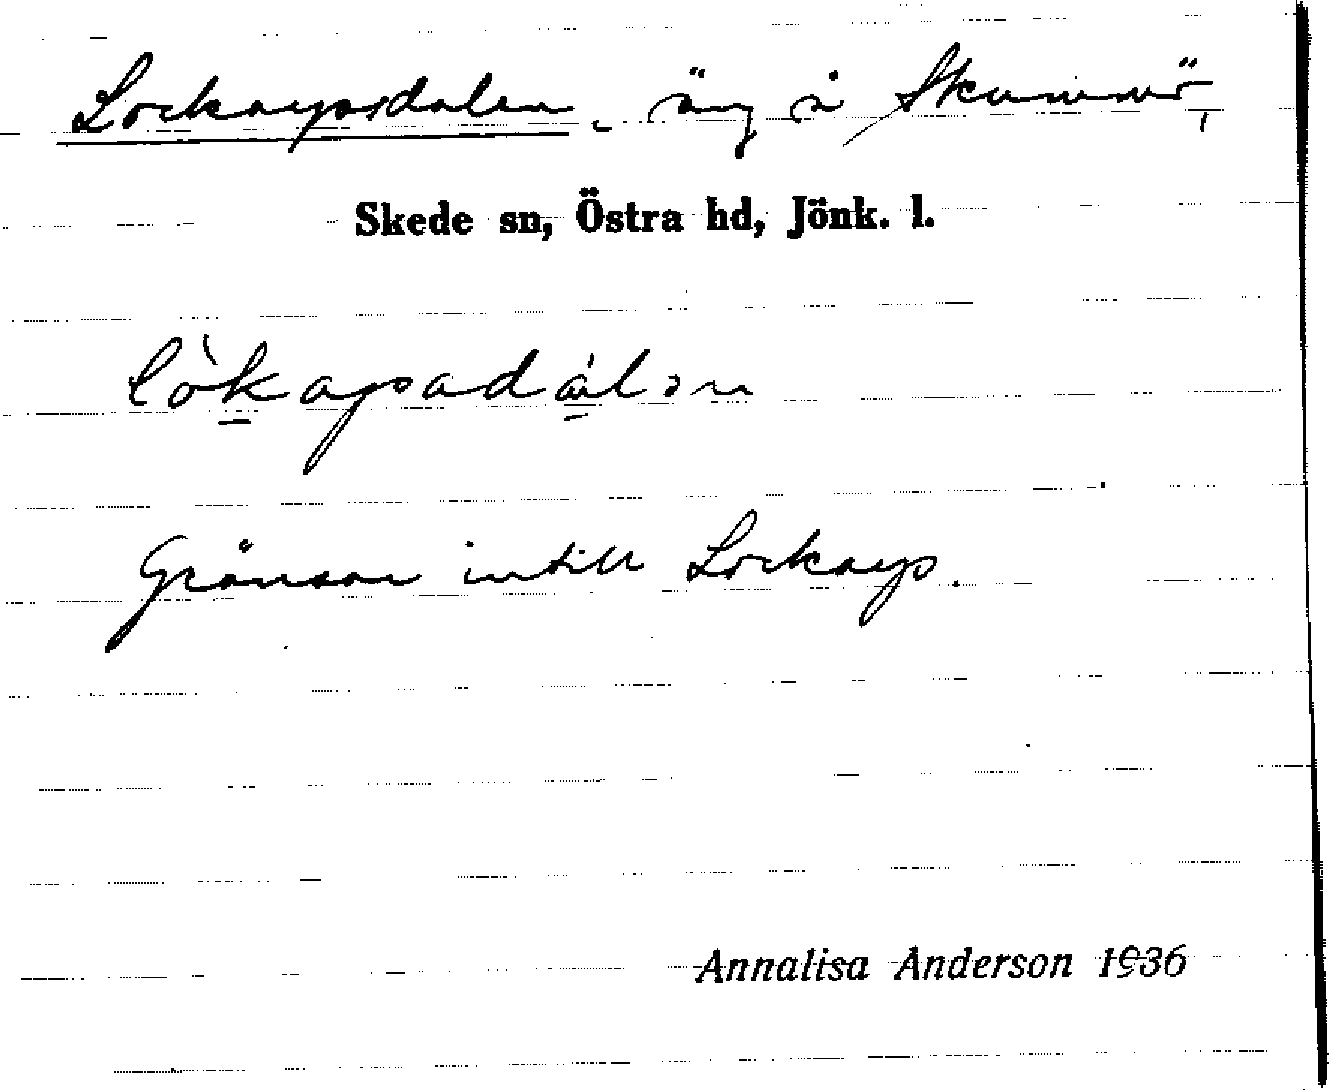 Lockarpsdalen, äng å Skummö,
Skede sn, Östra hd, Jönk. l.
lòkapadálən
Gränsar intill Lockarp.
Annalisa Anderson 1936